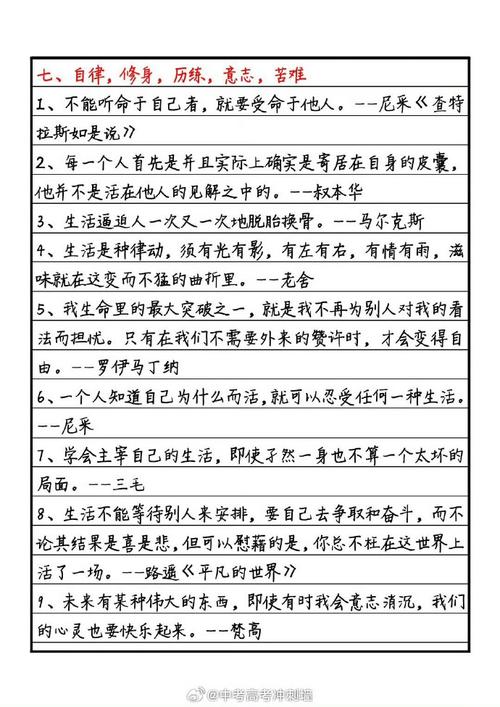 七、自律，修身，历练，意志，苦难
1、不能听命于自己者，就要受命于他人。--尼采《查特
拉斯如是说》
2、每一个人首先是并且实际上确实是寄居在自身的皮囊，
他并不是活在他人的见解之中的。--叔本华
3、生活逼迫人一次又一次地脱胎换骨。--马尔克斯
4、生活是种律动，须有光有影，有左有右，有情有雨，滋
味就在这变而不猛的曲折里。--老舍
5、我生命里的最大突破之一，就是我不再为别人对我的看
法而担忧。只有在我们不需要外来的赞许时，才会变得自
由。--罗伊马丁纳
6、一个人知道自己为什么而活，就可以忍受任何一种生活。
--尼采
7、学会主宰自己的生活，即使孑然一身也不算一个太坏的
局面。--三毛
8、生活不能等待别人来安排，要自己去争取和奋斗，而不
论其结果是喜是悲，但可以慰藉的是，你总不枉在这世界上
活了一场。--路遥《平凡的世界》
9、未来有某种伟大的东西，即使有时我会意志消沉，我们
的心灵也要快乐起来。--梵高
@中考高考冲刺喵